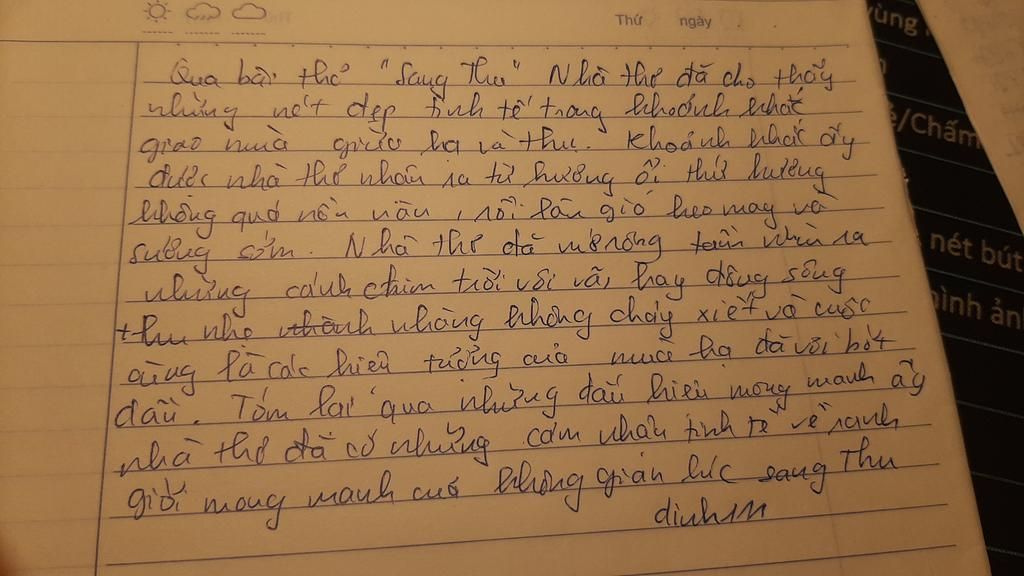 Thứ ngày
Qua bài thơ "Sang Thu" Nhà thơ đã cho thấy
những nét đẹp tinh tế trong khoảnh khắc
giao mùa giữa hạ và thu. Khoảnh khắc ấy
được nhà thơ nhận ra từ hương ổi thứ hương
không quá nồn nàn, rồi làn gió heo may và
sương sớm. Nhà thơ đã mở rộng tầm nhìn ra
những cánh chim trời vội vã, hay dòng sông
thu nhẹ nhàng không chảy xiết và cuộc
cùng là các hiện tượng của mùa hạ đã vơi bớt
dần. Tóm lại qua những dấu hiệu mong manh ấy
nhà thơ đã có những cảm nhận tinh tế về ranh
giới mong manh của không gian lúc sang Thu
dinh
vùng
ẻ/Chấm
nét bút
hình ản